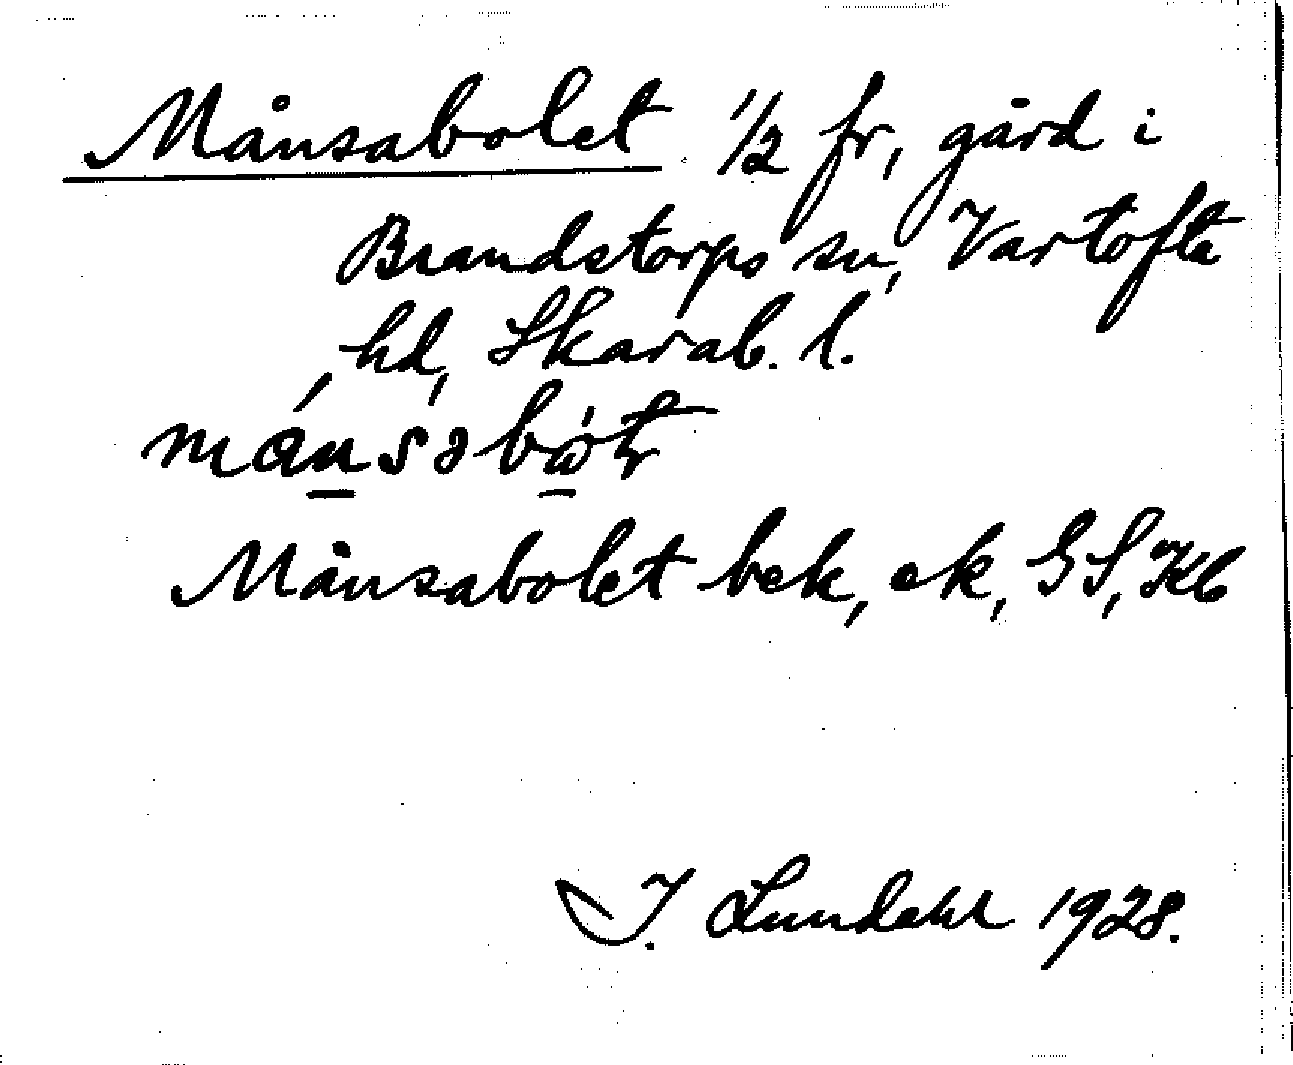 Månsabolet 1/2 fr, gård i
Brandstorps sn, Vartofta
hd, Skarab. l.
Månsabolet bek, ek, GS, Kb
I. Lundahl 1928.